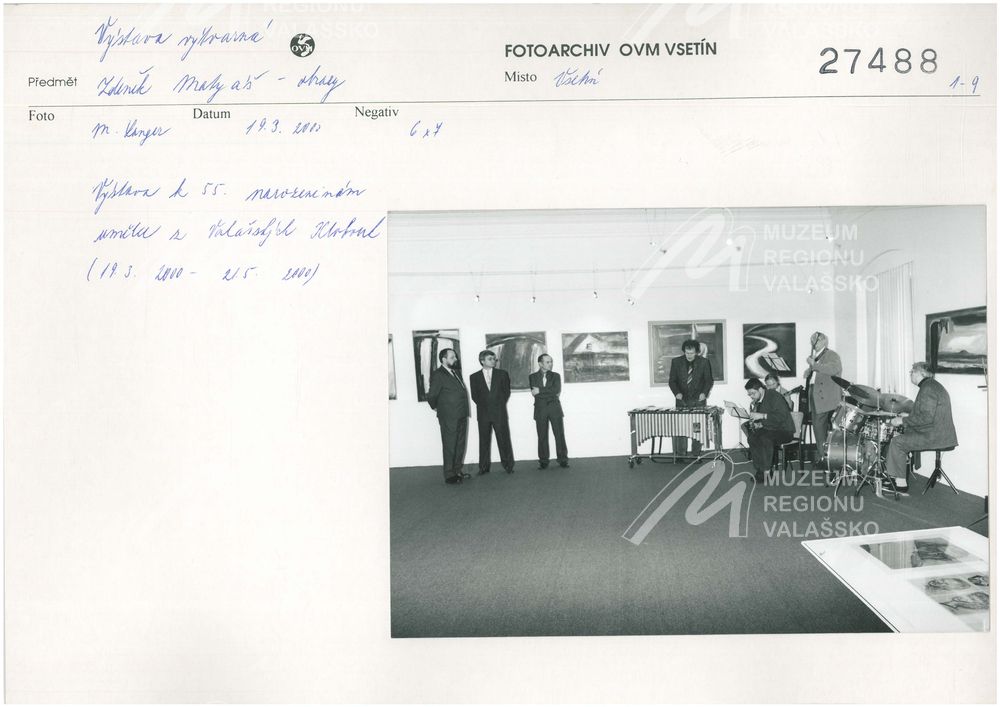 Výstava výtvarná
OVM
FOTOARCHIV OVM VSETÍN
27488
Předmět Zdeněk Matyáš - obrazy
Místo Vsetín
1-9
Foto
Datum
Negativ
M. Langer
19.3. 2000
6x7
Výstava k 55. narozeninám
umělce z Valašských Klobouk
(19.3. 2000 - 21.5. 2000)
MUZEUM
REGIONU
VALAŠSKO
MUZEUM
REGIONU
VALAŠSKO
REGIONU
VALAŠSKO
REGIONU
VALAŠSKO